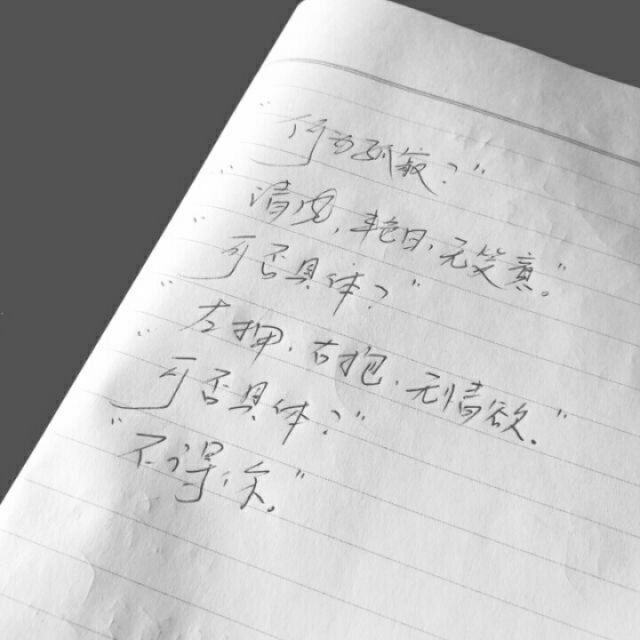 "何为孤寂？"
"清风，艳日，无笑意。"
"可否具体？"
"左拥，右抱，无情欲。"
"可否具体？"
"不得尔。"